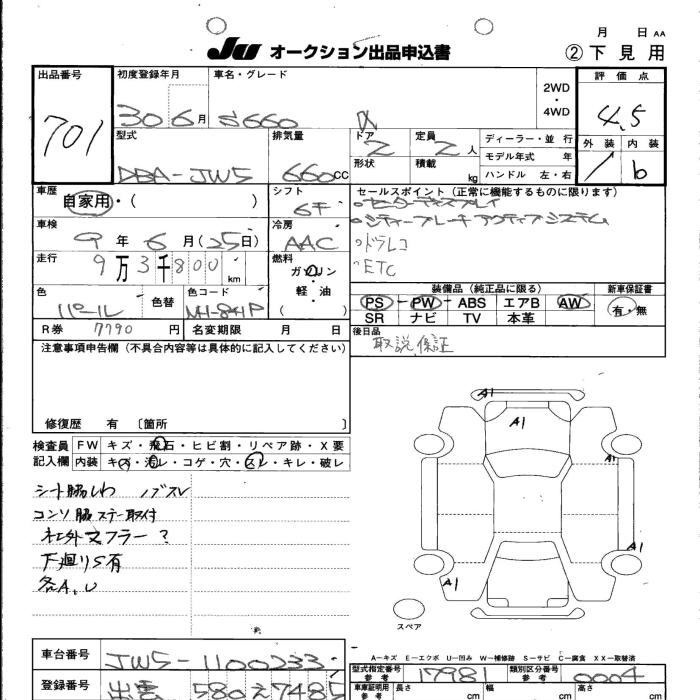 月 日 AA
JU オークション出品申込書 ②下見用
出品番号 初度登録年月 車名・グレード 2WD・4WD 評価点
701 30 6月 S660 α 4.5
型式 排気量 ドア 定員 ディーラー・並行 外装 内装
DBA-JW5 660cc 2 2人 モデル年式 年 b
形状 積載 kg ハンドル 左・右
車歴 シフト セールスポイント（正常に機能するものに限ります）
自家用・( ) 6F センターディスプレイ
車検 冷房 シティーブレーキアクティブシステム
9年6月(25日) AAC ドラレコ
走行 燃料 ETC
9万3千800km ガソリン
軽・油
( )
装備品（純正品に限る） 新車保証書
色 色替 色コード PS-PW-ABS エアB AW 有・無
パール NH-841P SR ナビ TV 本革
R券 7790円 名変期限 月 日 後日品
取説 保証
注意事項申告欄（不具合内容等は具体的に記入してください）
修復歴 有 〔箇所 〕
検査員 FW キズ・飛石・ヒビ割・リペア跡・X要
記入欄 内装 キズ・汚レ・コゲ・穴・スレ・キレ・破レ
A1
A1
A1
A1
A1
シート脇しわ ノブスレ
コンソ脇ステー取付
社外マフラー?
下廻りS有
各A、U
スペア
A-キズ E-エクボ U-凹み W-補修跡 S-サビ C-腐食 XX-取替済
車台番号 JW5-1100233 型式指定番号 参考 17981 類別区分番号 参考 0004
登録番号 出雲 580 え 7485 車車証明用 参考 長さ cm 幅 cm 高さ cm